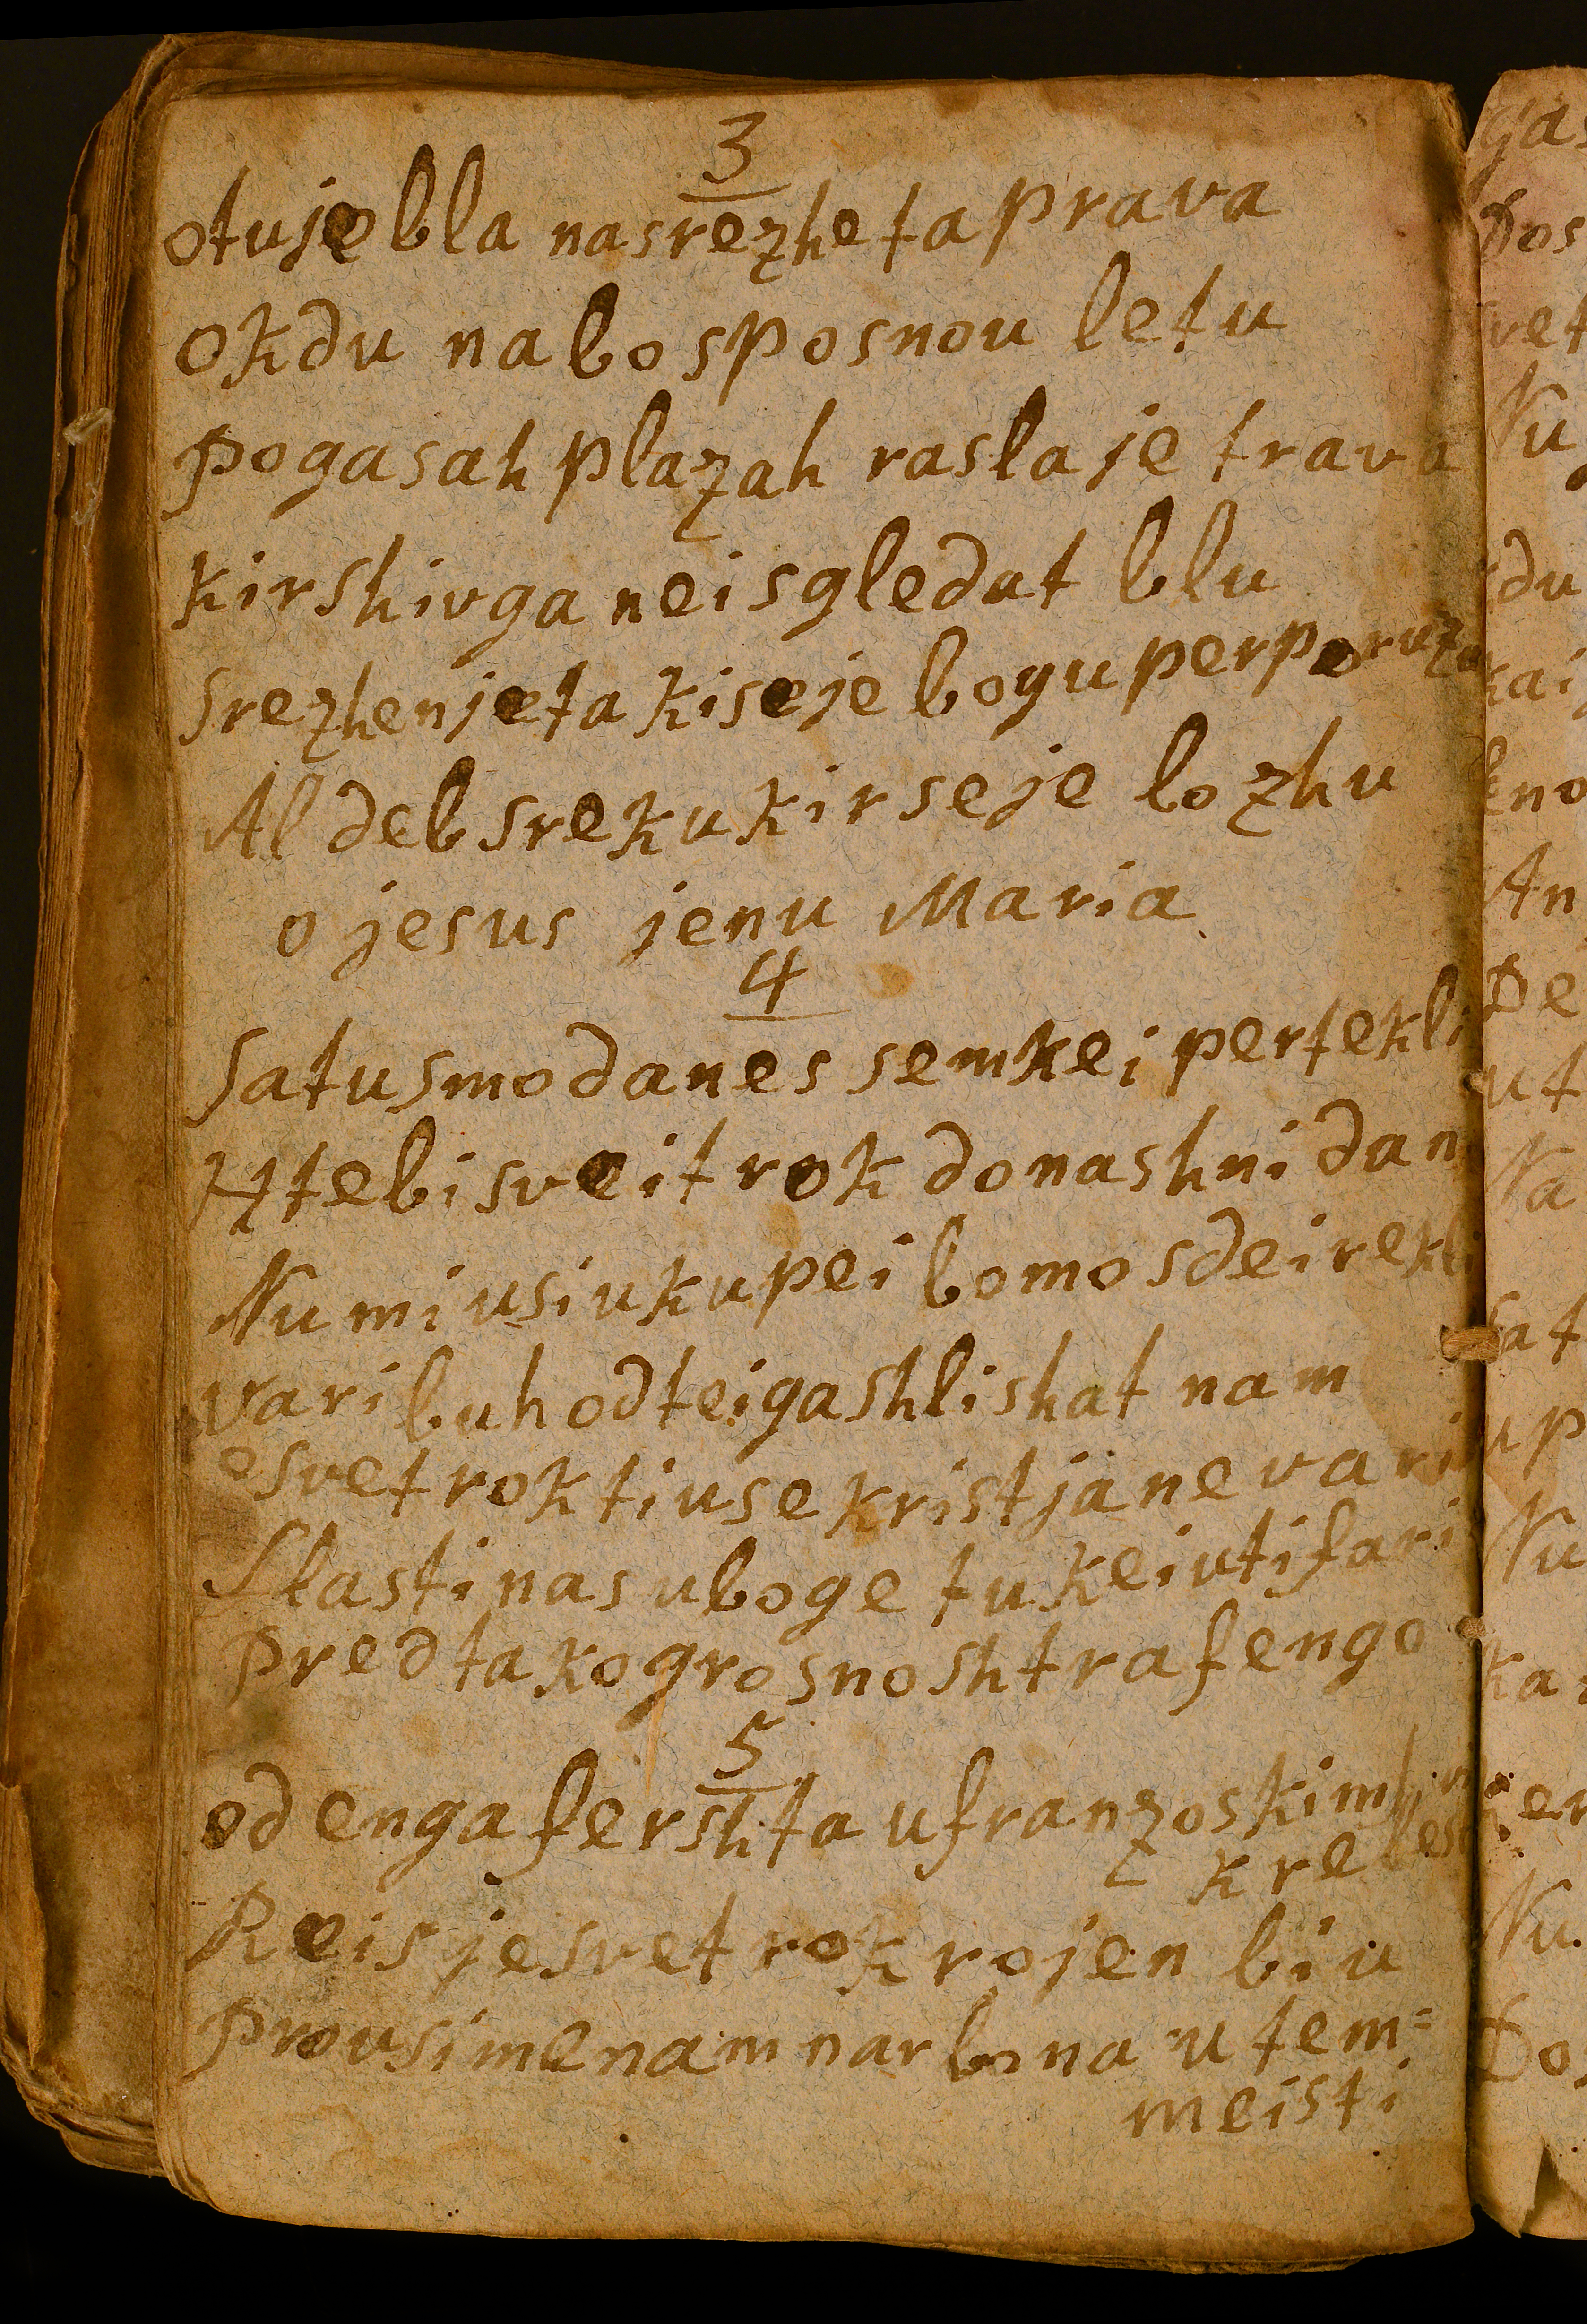 3
otuje bla nasrezhe ta prava
okdu nabo sposnou letu
pogasah plazah rasla je trava
kirshivga neisgledat blu
srezhen je ta kiseje bogu perporuzu
Al deb sreku kir seje lozhu
o jesus jenu Maria
4
satu smo danes semkei pertekli
Htebi sveit rok donashni dan
Nu mi usi ukupei bomo sdei rekli
vari buh od teiga shlishat nam
o svet rok ti use kristjane vari
slasti nas uboge tukei uti fari
pred tako grosno shtrafengo
5
od enga fershta ufranzoskim
kre
Reis je svet rok rojen biu
Prousimenam narbona u tem=
meisti
gas
Dos
svet
Nu
kdu
kai
An
De
ut
Na
sat
up
Nu
ka
Nu
Dos